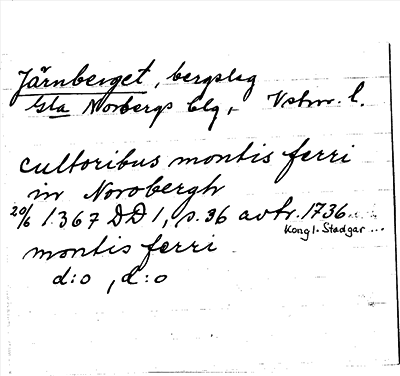 Järnberget, bergslag
Gla Norbergs blg, Vstm. l.
cultoribus montis ferri
in Norobergh
20/6 1367 DD 1, s. 36 avtr. 1736...
Kongl. Stadgar ...
montis ferri
d:o, d:o